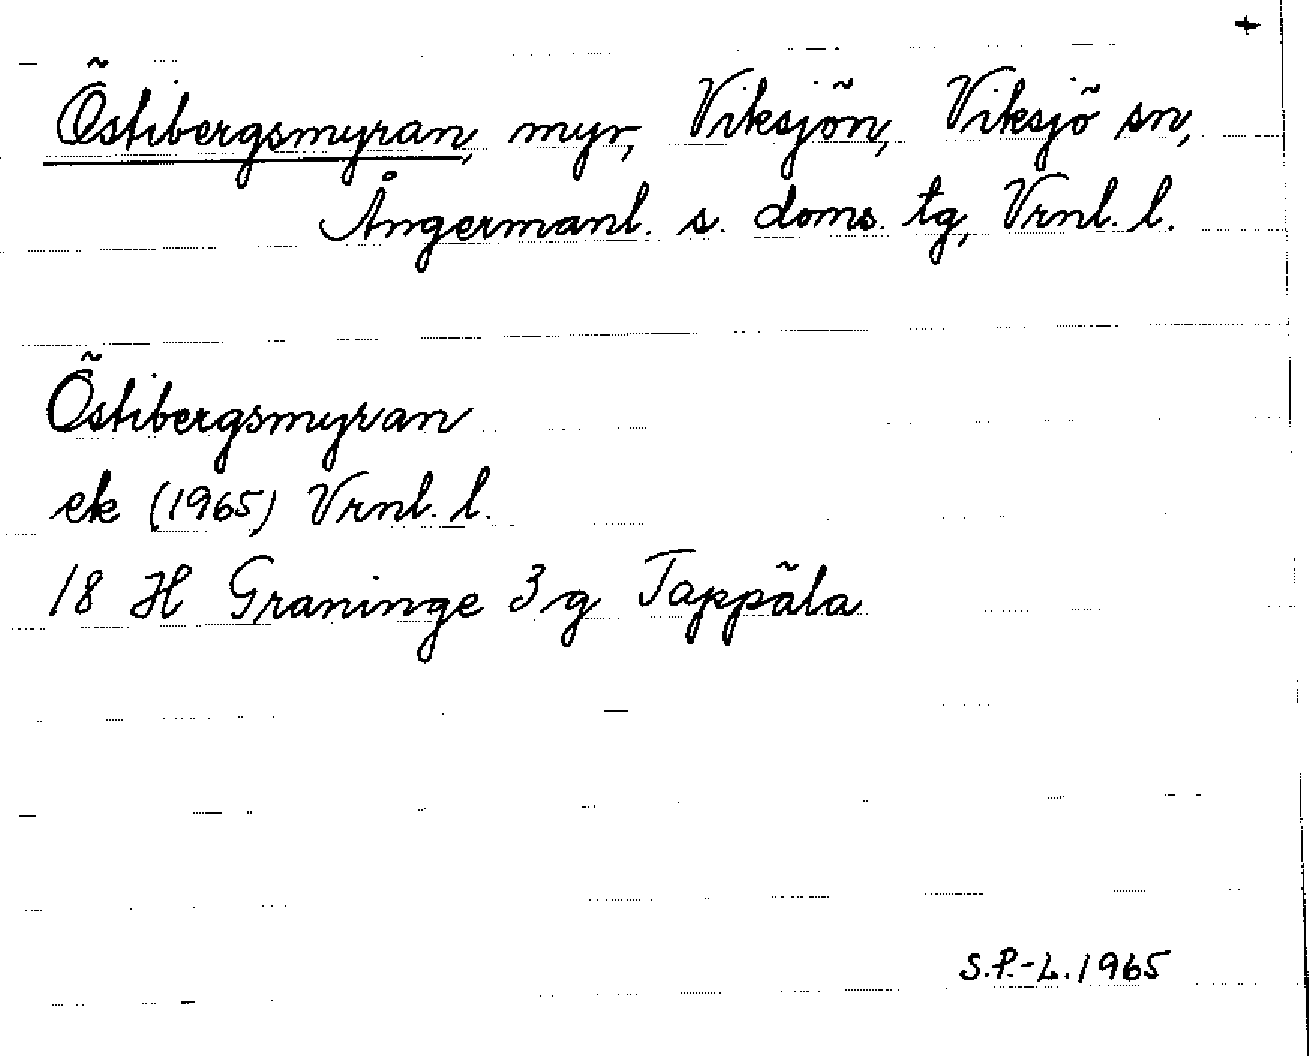 +
Östibergsmyran, myr, Viksjön, Viksjö sn,
Ångermanl. s. doms. tg, Vrnl. l.
Östibergsmyran
ek (1965) Vrnl. l.
18 H Graninge 3 g Tappäla
S.P.-L. 1965